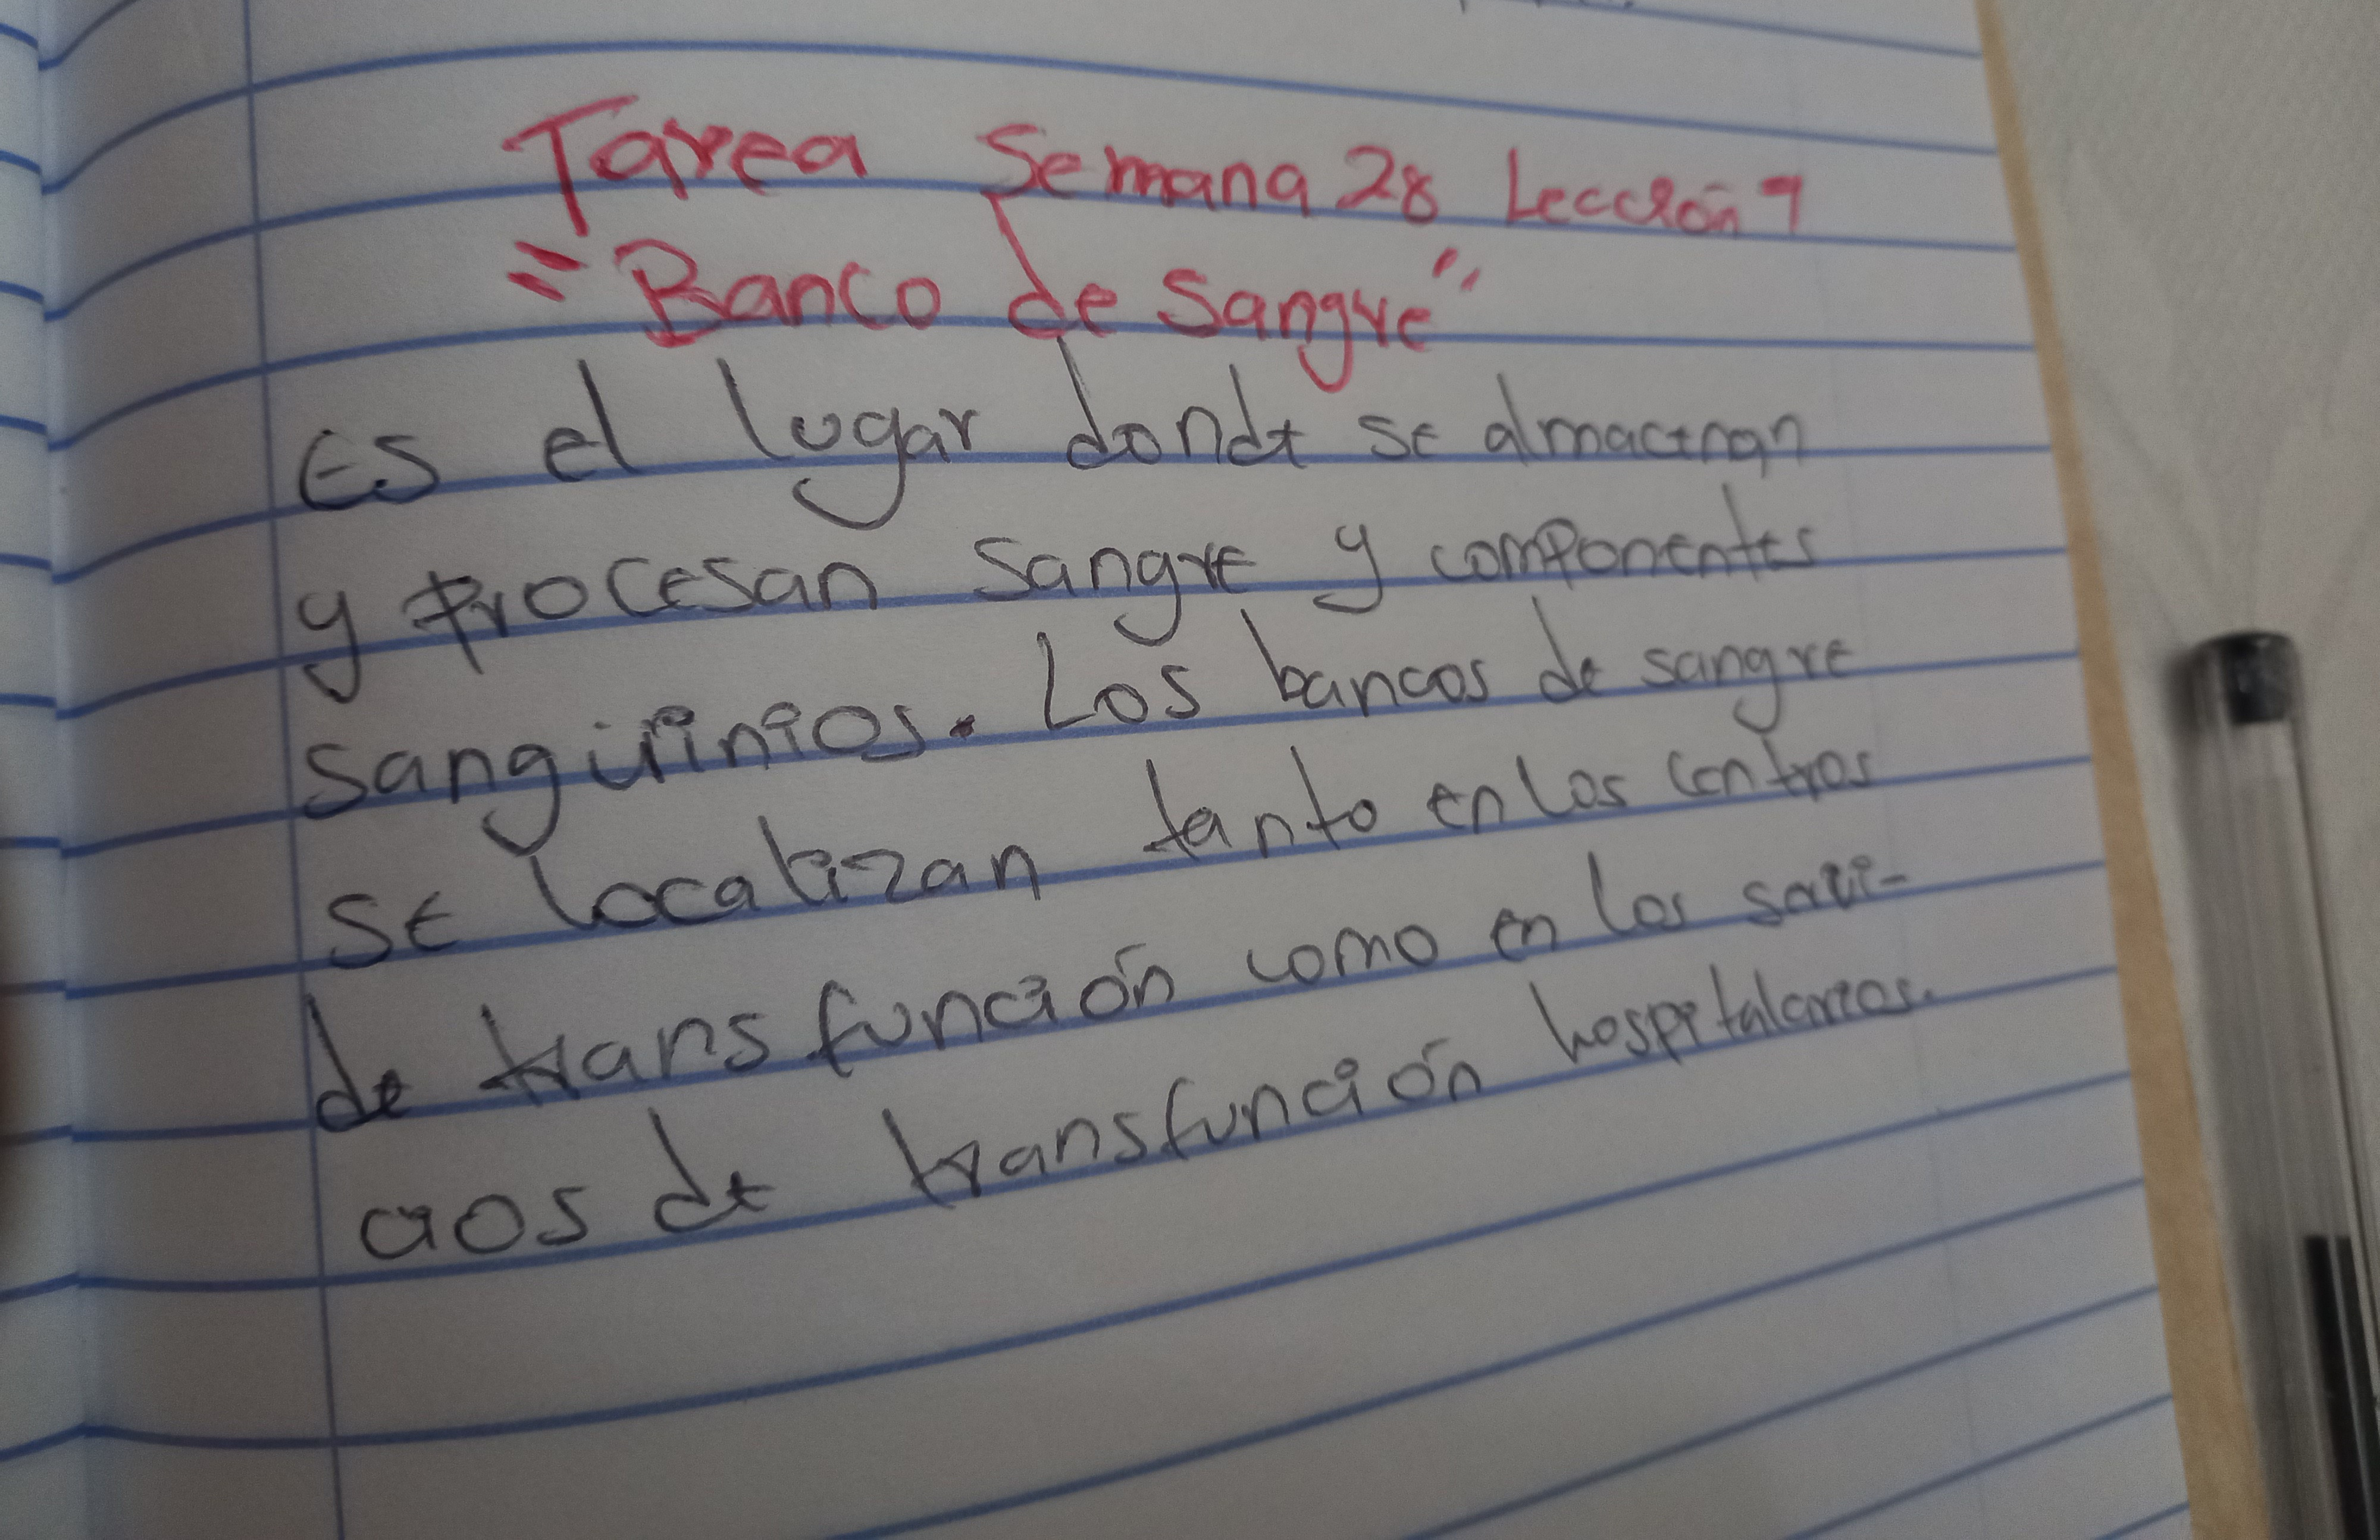 Tarea Semana 28 Lección 9
"Banco de Sangre"
Es el lugar donde se almacenan
y procesan sangre y componentes
sangüinios. Los bancos de sangre
se localizan tanto en los centros
de transfunción como en los savi-
cios de transfunción hospitalarios.